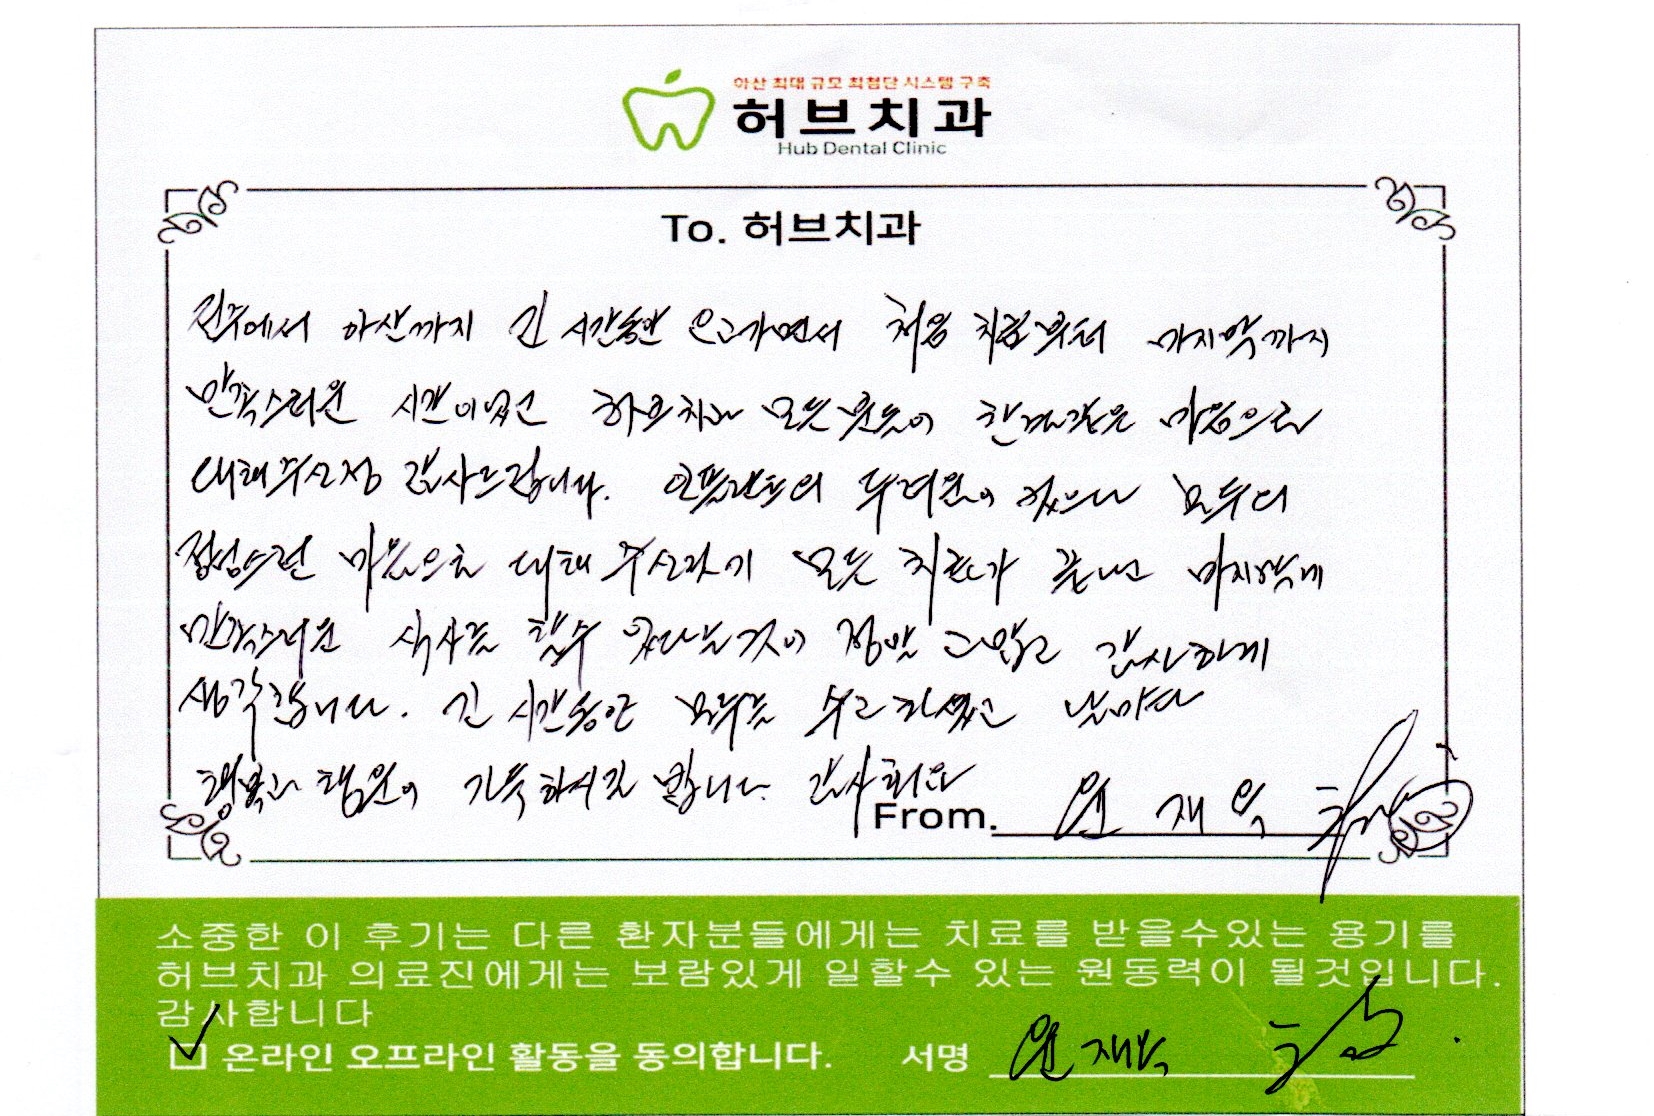 아산 최대 규모 최첨단 시스템 구축
허브치과
Hub Dental Clinic
To. 허브치과
전주에서 아산까지 긴 시간동안 오고가면서 처음 치료부터 마지막까지
만족스러운 시간이었고 허브치과 모든분들이 한결같은 마음으로
대해주신점 감사드립니다. 임플란트의 두려움이 있으나 모두의
정성스런 마음으로 대해 주신라기 모든 치료가 끝나고 마지막에
만족스러운 식사를 할수 있다는것이 정말 고맙고 감사하게
생각합니다. 긴 시간동안 모두들 수고하셨고 날마다
행복과 행운이 가득하시길 빕니다. 감사해요
From. 원재억
소중한 이 후기는 다른 환자분들에게는 치료를 받을수있는 용기를
허브치과 의료진에게는 보람있게 일할수 있는 원동력이 될것입니다.
감사합니다
온라인 오프라인 활동을 동의합니다. 서명 원재억